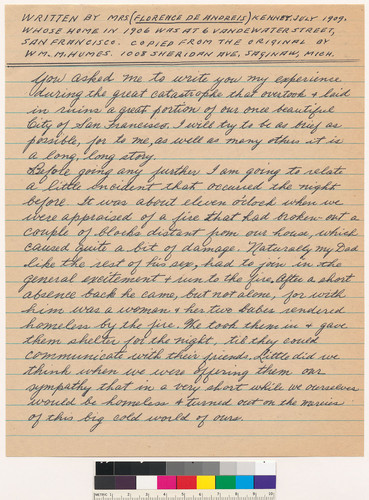 WRITTEN BY MRS (FLORENCE DE ANDREIS) KENNEY. JULY 1909.
WHOSE HOME IN 1906 WAS AT 6 VANDEWATER STREET,
SAN FRANCISCO. COPIED FROM THE ORIGINAL BY
WM. M. HUMES. 1008 SHERIDAN AVE, SAGINAW, MICH.
You asked me to write you my experience
during the great catastrophe that overtook & laid
in ruins a great portion of our once beautiful
City of San Francisco. I will try to be as brief as
possible, for to me, as well as many others it is
a long, long story.
Before going any further I am going to relate
a little incident that occured the night
before. It was about eleven o'clock when we
were appraised of a fire that had broken out a
couple of blocks distant from our house, which
caused quite a bit of damage. Naturally my Dad
like the rest of his sex, had to join in the
general excitement & run to the fire. After a short
absence back he came, but not alone, for with
him was a woman & her two babes rendered
homeless by the fire. We took them in & gave
them shelter for the night, til they could
communicate with their friends. Little did we
think when we were offering them our
sympathy that in a very short while we ourselves
would be homeless & turned out on the mercies
of this big cold world of ours.